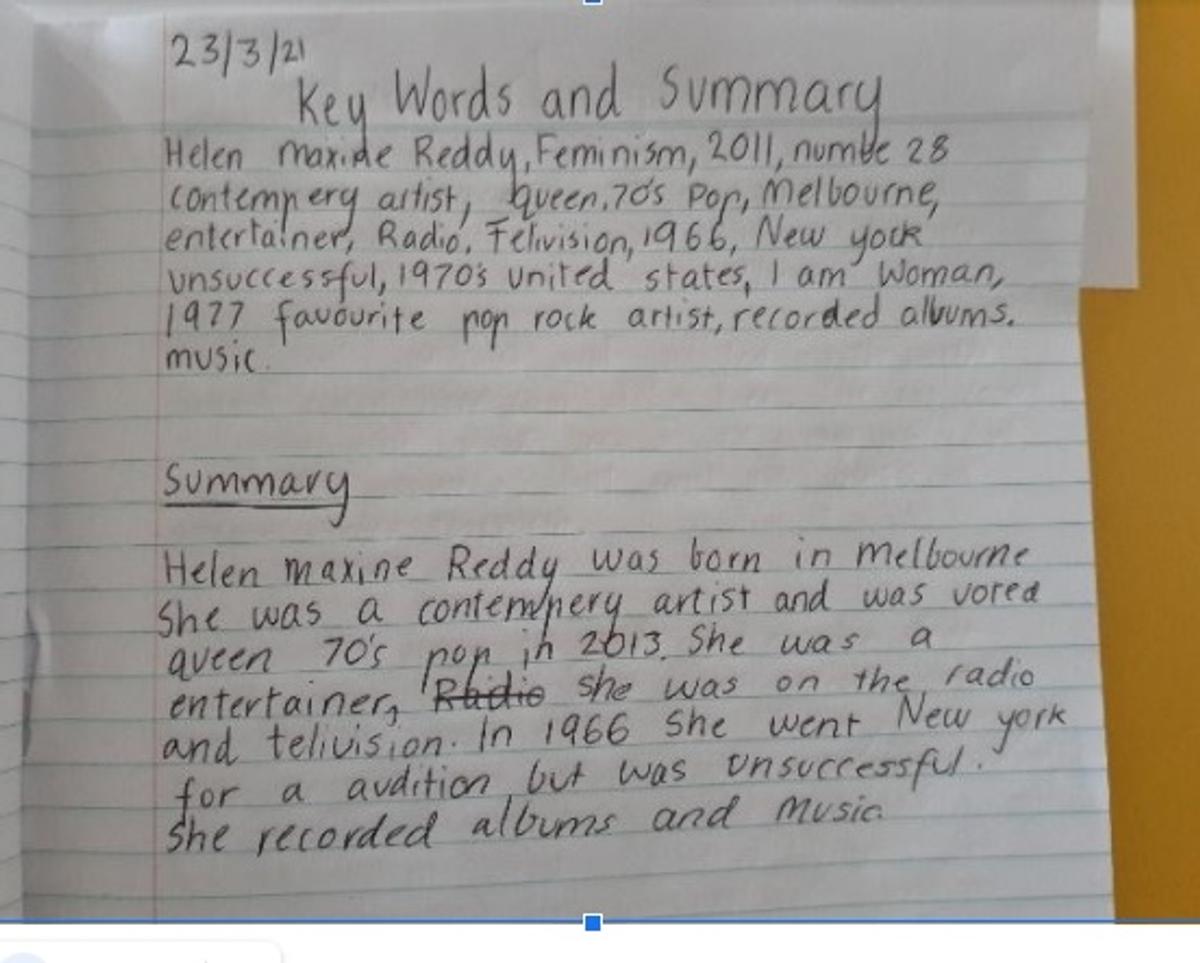 23/3/21
Key Words and Summary
Helen maxide Reddy, Feminism, 2011, numbe 28
contempery artist, queen.70's Pop, Melbourne,
entertainer, Radio. Telivision, 1966, New yock
unsuccessful, 1970's united states, I am Woman,
1977 favourite pop rock artist, recorded albums.
music.
Summary
Helen maxine Reddy was born in melbourne
She was a contempery artist and was vored
queen 70's pop in 2013. She was a
entertainer, Radio she was on the radio
and telivision. In 1966 She went New york
for a audition but was unsuccessful.
She recorded albums and music.